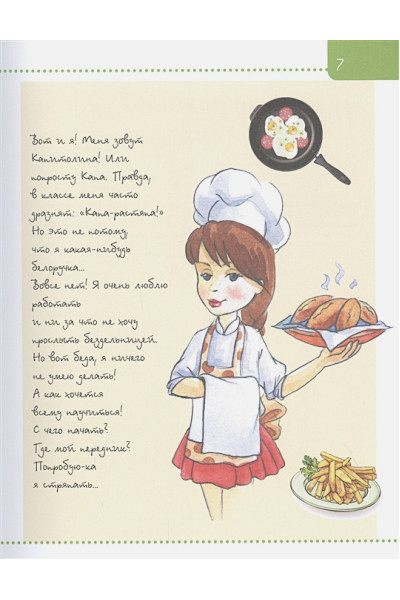 7
Вот и я! Меня зовут
Капитолина! Или
попросту Капа. Правда,
в классе меня часто
дразнят: «Капа-растяпа!»
Но это не потому,
что я какая-нибудь
белоручка...
Вовсе нет! Я очень люблю
работать
и ни за что не хочу
прослыть бездельницей.
Но вот беда, я ничего
не умею делать!
А как хочется
всему научиться!
С чего начать?
Где мой передник?
Попробую-ка
я стряпать...